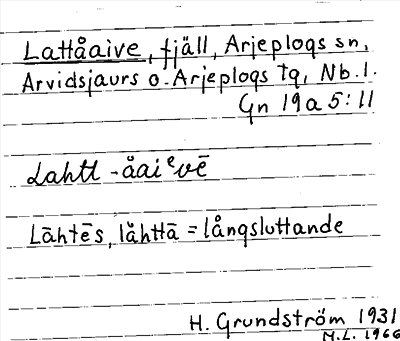 Lattåaive, fjäll, Arjeplogs sn,
Arvidsjaurs o. Arjeplogs tg, Nb. l.
Gn 19a 5:11
Lahtt -åaiᵉvē
Lāhtēs, lǎhttā = långsluttande
H. Grundström 1931
M.L. 1966